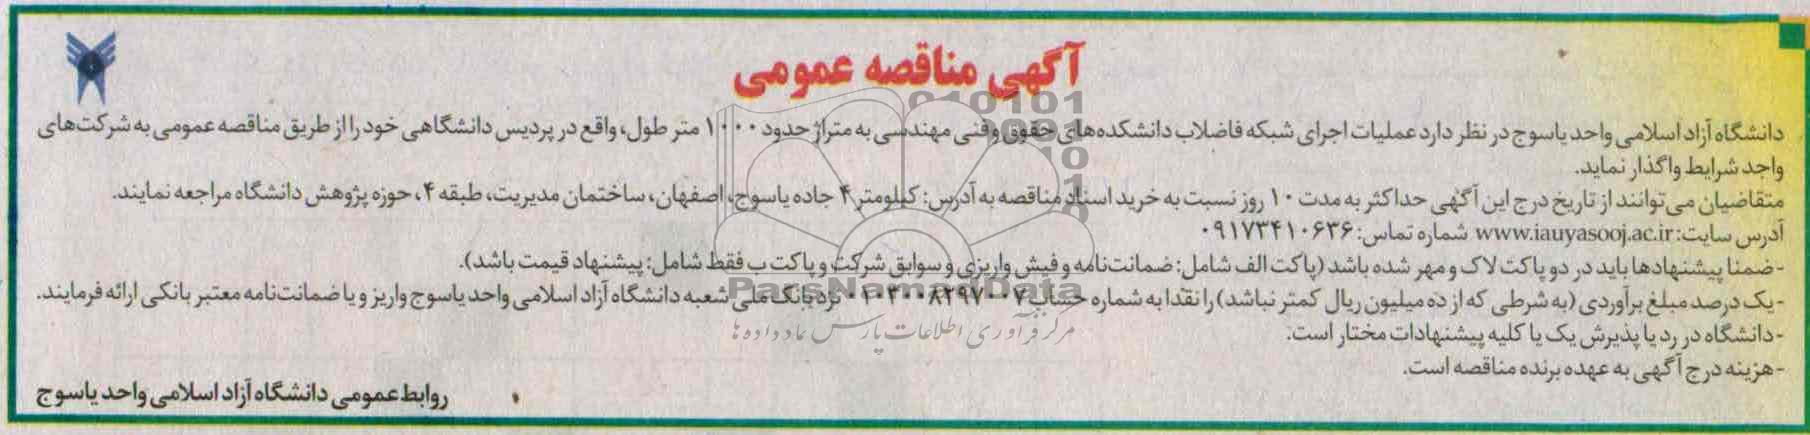 آگهی مناقصه عمومی
دانشگاه آزاد اسلامی واحد یاسوج در نظر دارد عملیات اجرای شبکه فاضلاب دانشکده‌های حقوق و فنی مهندسی به متراژ حدود ۱۰۰۰ متر طول، واقع در پردیس دانشگاهی خود را از طریق مناقصه عمومی به شرکت‌های
واجد شرایط واگذار نماید.
متقاضیان می‌توانند از تاریخ درج این آگهی حداکثر به مدت ۱۰ روز نسبت به خرید اسناد مناقصه به آدرس: کیلومتر ۴ جاده یاسوج، اصفهان، ساختمان مدیریت، طبقه ۴، حوزه پژوهش دانشگاه مراجعه نمایند.
آدرس سایت: www.iauyasooj.ac.ir شماره تماس: ۰۹۱۷۳۴۱۰۶۳۶
- ضمنا پیشنهادها باید در دو پاکت لاک و مهر شده باشد (پاکت الف شامل: ضمانت‌نامه و فیش واریزی و سوابق شرکت و پاکت ب فقط شامل: پیشنهاد قیمت باشد).
- یک درصد مبلغ برآوردی (به شرطی که از ده میلیون ریال کمتر نباشد) را نقدا به شماره حساب ۰۱۰۳۰۰۸۲۹۷۰۰۷ نزد بانک ملی شعبه دانشگاه آزاد اسلامی واحد یاسوج واریز و یا ضمانت‌نامه معتبر بانکی ارائه فرمایند.
- دانشگاه در رد یا پذیرش یک یا کلیه پیشنهادات مختار است.
- هزینه درج آگهی به عهده برنده مناقصه است.
روابط عمومی دانشگاه آزاد اسلامی واحد یاسوج
ParsNamadData
مرکز فرآوری اطلاعات پارس نماد داده‌ها